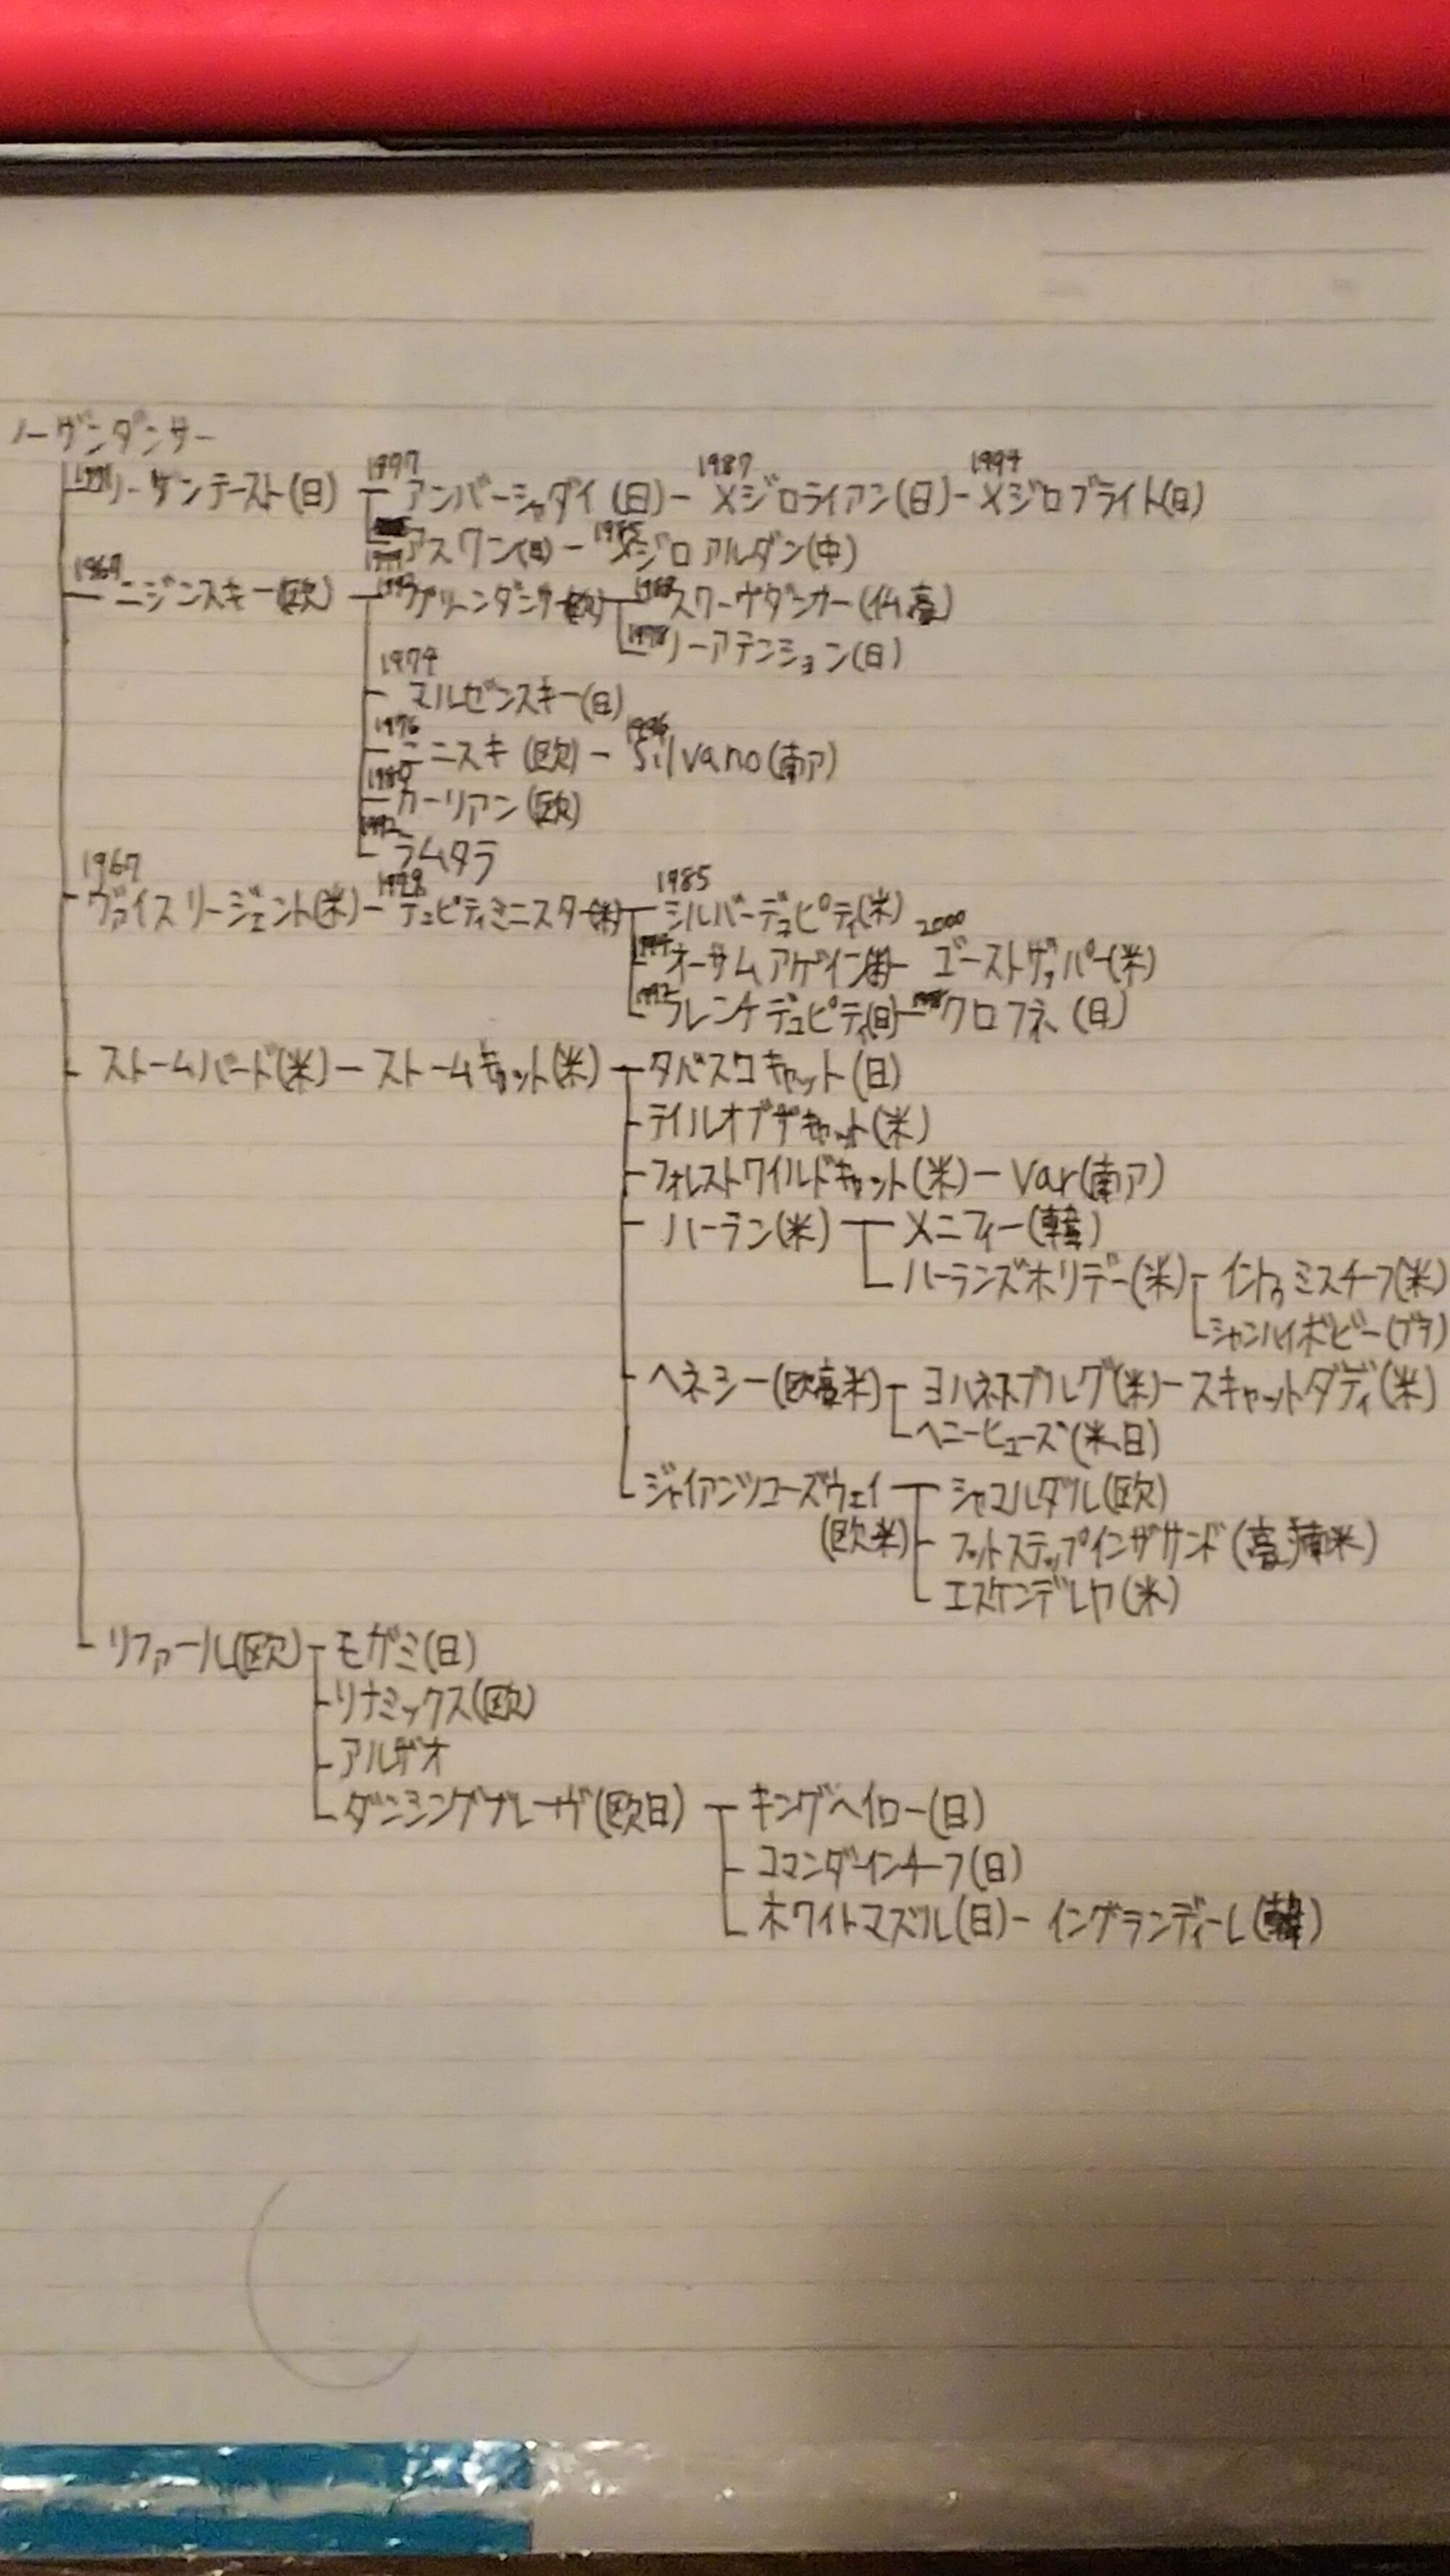 ノーザンダンサー
1971 1977 1987 1994
ノーザンテースト(日) アンバーシャダイ(日)-メジロライアン(日)-メジロブライト(日)
1985
アスワン(日)-メジロアルダン(中)
1967 1968
ニジンスキー(欧) グリーンダンサー(欧) スワーヴダンサー(仏豪)
1978 ノーアテンション(日)
1974
マルゼンスキー(日)
1976 1996
ニニスキ(欧)-Silvano(南ア)
1980
カーリアン(欧)
1992
ラムタラ
1967 1985
ヴァイスリージェント(米)-デュピティミニスター(米) シルバーデュピティ(米) 2000
オーサムアゲイン(米)-ゴーストザッパー(米)
1992 フレンチデュピティ(日)-1998 クロフネ(日)
ストームバード(米)-ストームキャット(米) タバスコキャット(日)
テイルオブザキャット(米)
フォレストワイルドキャット(米)-Var(南ア)
ハーラン(米) メニフィー(韓)
ハーランズホリデー(米) イントゥミスチーフ(米)
シャンハイボビー(ブラ)
ヘネシー(欧豪米) ヨハネスブルグ(米)-スキャットダディ(米)
ヘニーヒューズ(米、日)
ジャイアンツコーズウェイ シャマルダル(欧)
(欧米) フットステップインザサンド(豪,南米)
エスケンデレヤ(米)
リファール(欧) モガミ(日)
リナミックス(欧)
アルザオ
ダンシングブレーヴ(欧日) キングヘイロー(日)
コマンダーインチーフ(日)
ホワイトマズル(日)-イングランディーレ(韓)